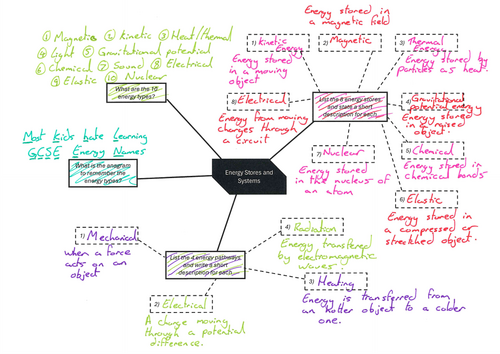 ① Magnetic ② Kinetic ③ Heat/thermal
④ Light ⑤ Gravitational potential
⑥ Chemical ⑦ Sound ⑧ Electrical
⑨ Elastic ⑩ Nuclear
What are the 10
energy types?
Most Kids hate Learning
GCSE Energy Names
What is the anagram
to remember the
energy types?
Energy Stores and
Systems
List the 8 energy stores
and state a short
description for each.
1) Kinetic
Energy
Energy stored
in a moving
object
Energy stored in
a magnetic field
2) Magnetic
3) Thermal
Energy
Energy stored by
particles as heat.
4) Gravitational
potential energy
Energy stored
in a raised
object.
5) Chemical
Energy stored in
chemical bonds
6) Elastic
Energy stored in
a compressed or
streched object.
7) Nuclear
Energy stored
in the nucleus of
an atom
8) Electrical
Energy from moving
charges through
a circuit
List the 4 energy pathways
and write a short
description for each.
1) Mechanical
when a force
acts on an
object
2) Electrical
A charge moving
through a potential
difference.
3) Heating
Energy is transferred from
an hotter object to a colder
one.
4) Radiation
Energy transferred
by electromagnetic
waves.